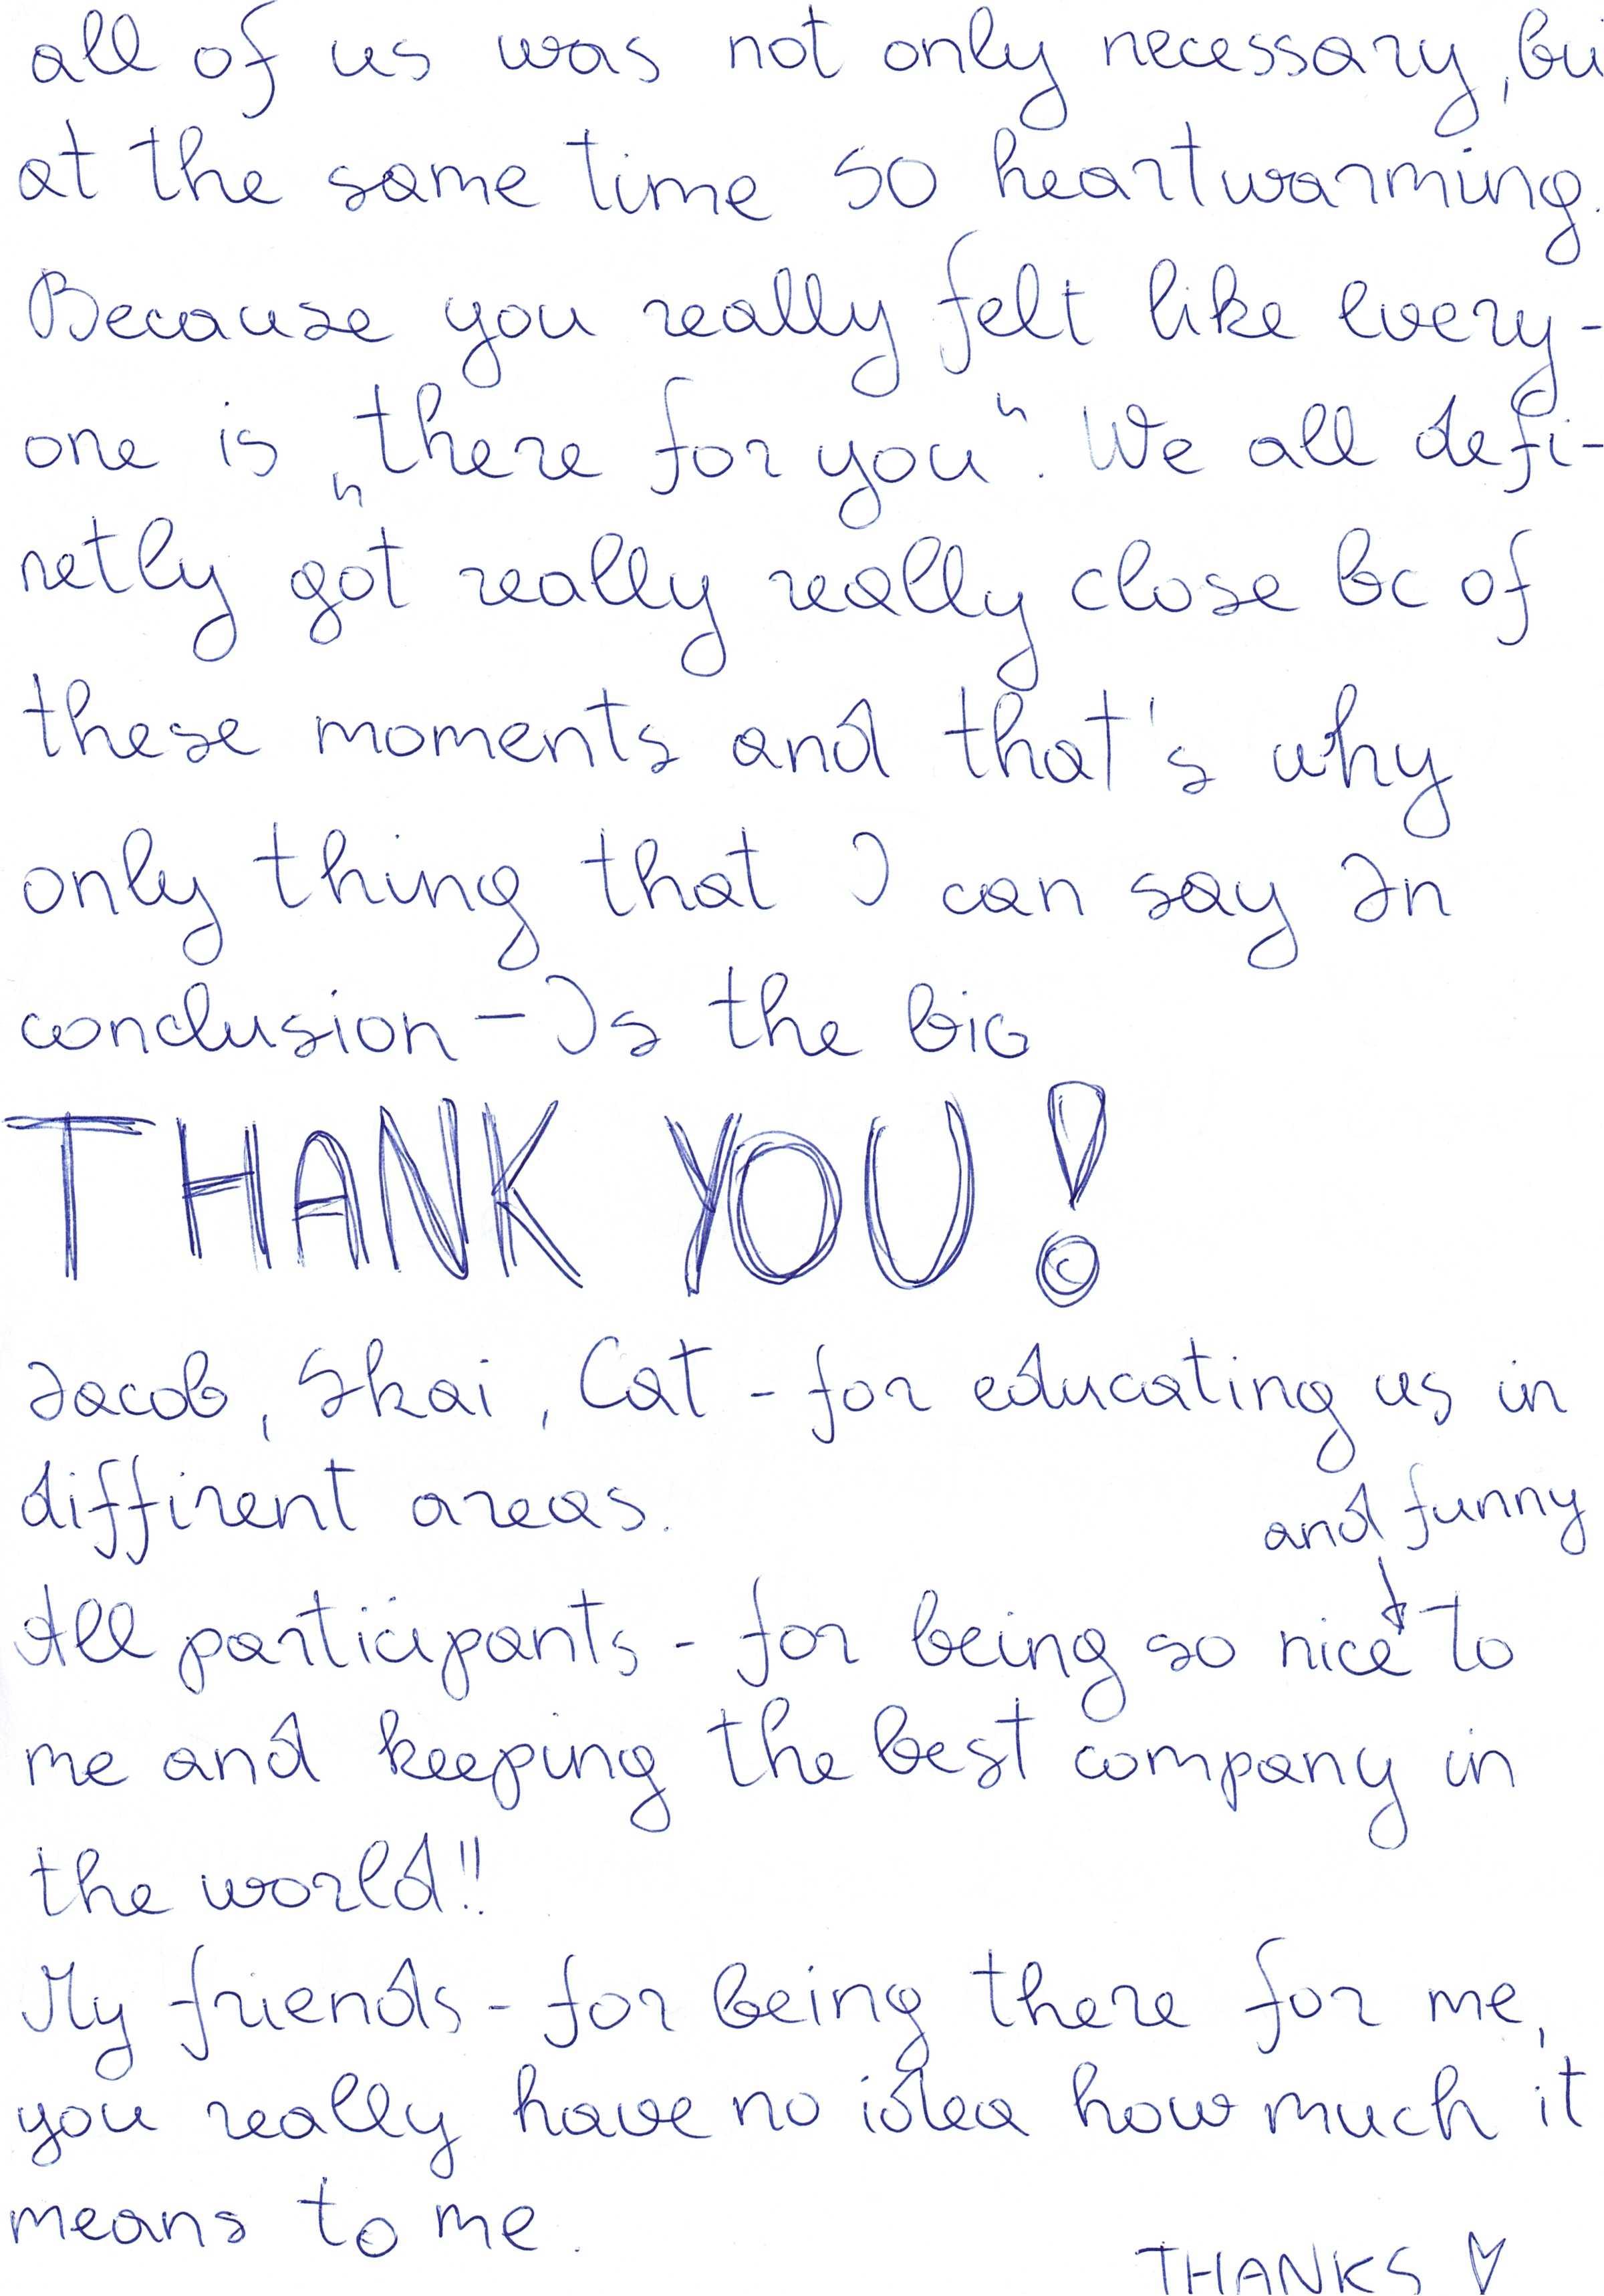 all of us was not only necessary, bu
at the same time so heartwarming.
Because you really felt like every-
one is „there for you“. We all defi-
netly got really really close bc of
these moments and that's why
only thing that I can say In
conclusion – Is the big
THANK YOU!
Jacob, Skai, Cat - for educating us in
diffirent areas.
and funny
All participants - for being so nice to
me and keeping the best company in
the world!!
My friends - for being there for me,
you really have no idea how much it
means to me.
THANKS ♡